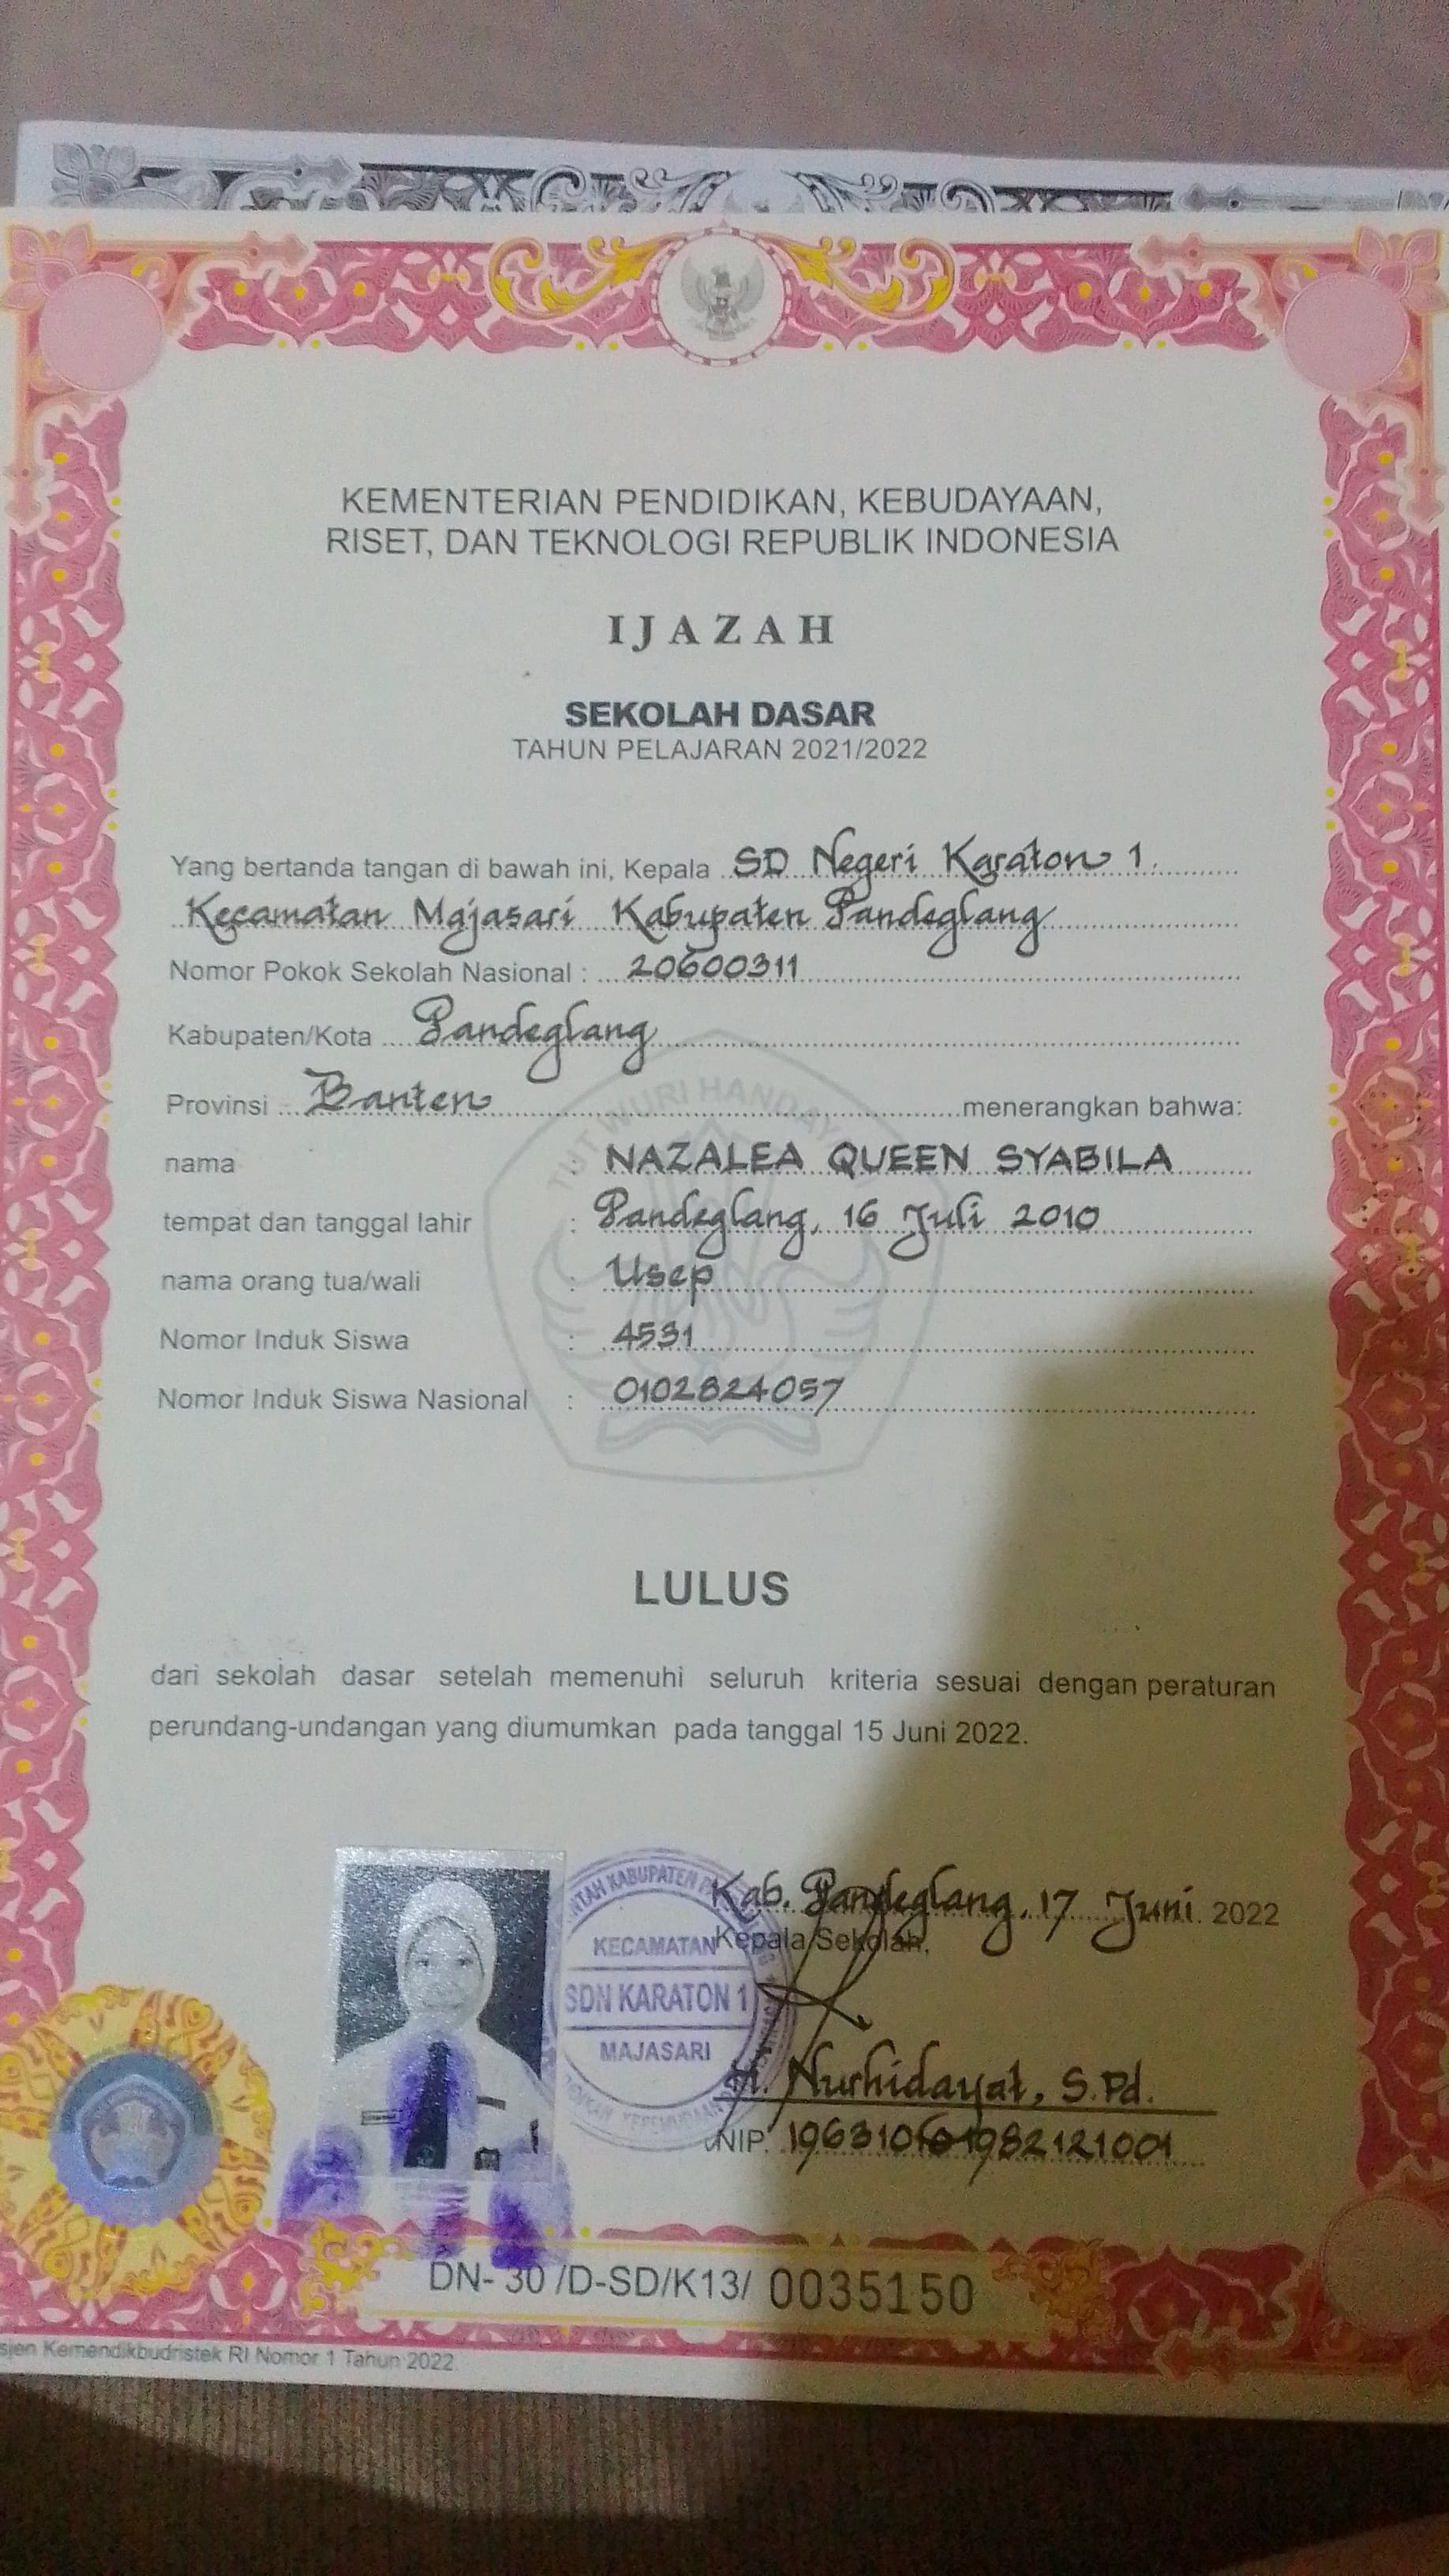 KEMENTERIAN PENDIDIKAN, KEBUDAYAAN,
RISET, DAN TEKNOLOGI REPUBLIK INDONESIA
IJAZAH
SEKOLAH DASAR
TAHUN PELAJARAN 2021/2022
Yang bertanda tangan di bawah ini, Kepala SD Negeri Karaton 1.
Kecamatan Majasari Kabupaten Pandeglang
Nomor Pokok Sekolah Nasional : 20600311
Kabupaten/Kota Pandeglang
TUT WURI HANDAYA
Provinsi Banten menerangkan bahwa:
nama : NAZALEA QUEEN SYABILA
tempat dan tanggal lahir : Pandeglang, 16 Juli 2010
nama orang tua/wali : Usep
Nomor Induk Siswa : 4531
Nomor Induk Siswa Nasional : 0102824057
LULUS
dari sekolah dasar setelah memenuhi seluruh kriteria sesuai dengan peraturan
perundang-undangan yang diumumkan pada tanggal 15 Juni 2022.
Kab. Pandeglang, 17 Juni 2022
Kepala Sekolah,
NTAH KABUPATEN
KECAMATAN
SDN KARATON 1
MAJASARI
H. Nurhidayat, S.Pd.
NIP. 196310101982121001
DN- 30 /D-SD/K13/ 0035150
sjen Kemendikbudristek RI Nomor 1 Tahun 2022